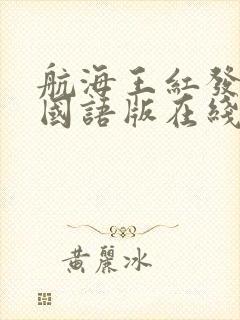 航海王紅發
國語版在綫
黃麗冰